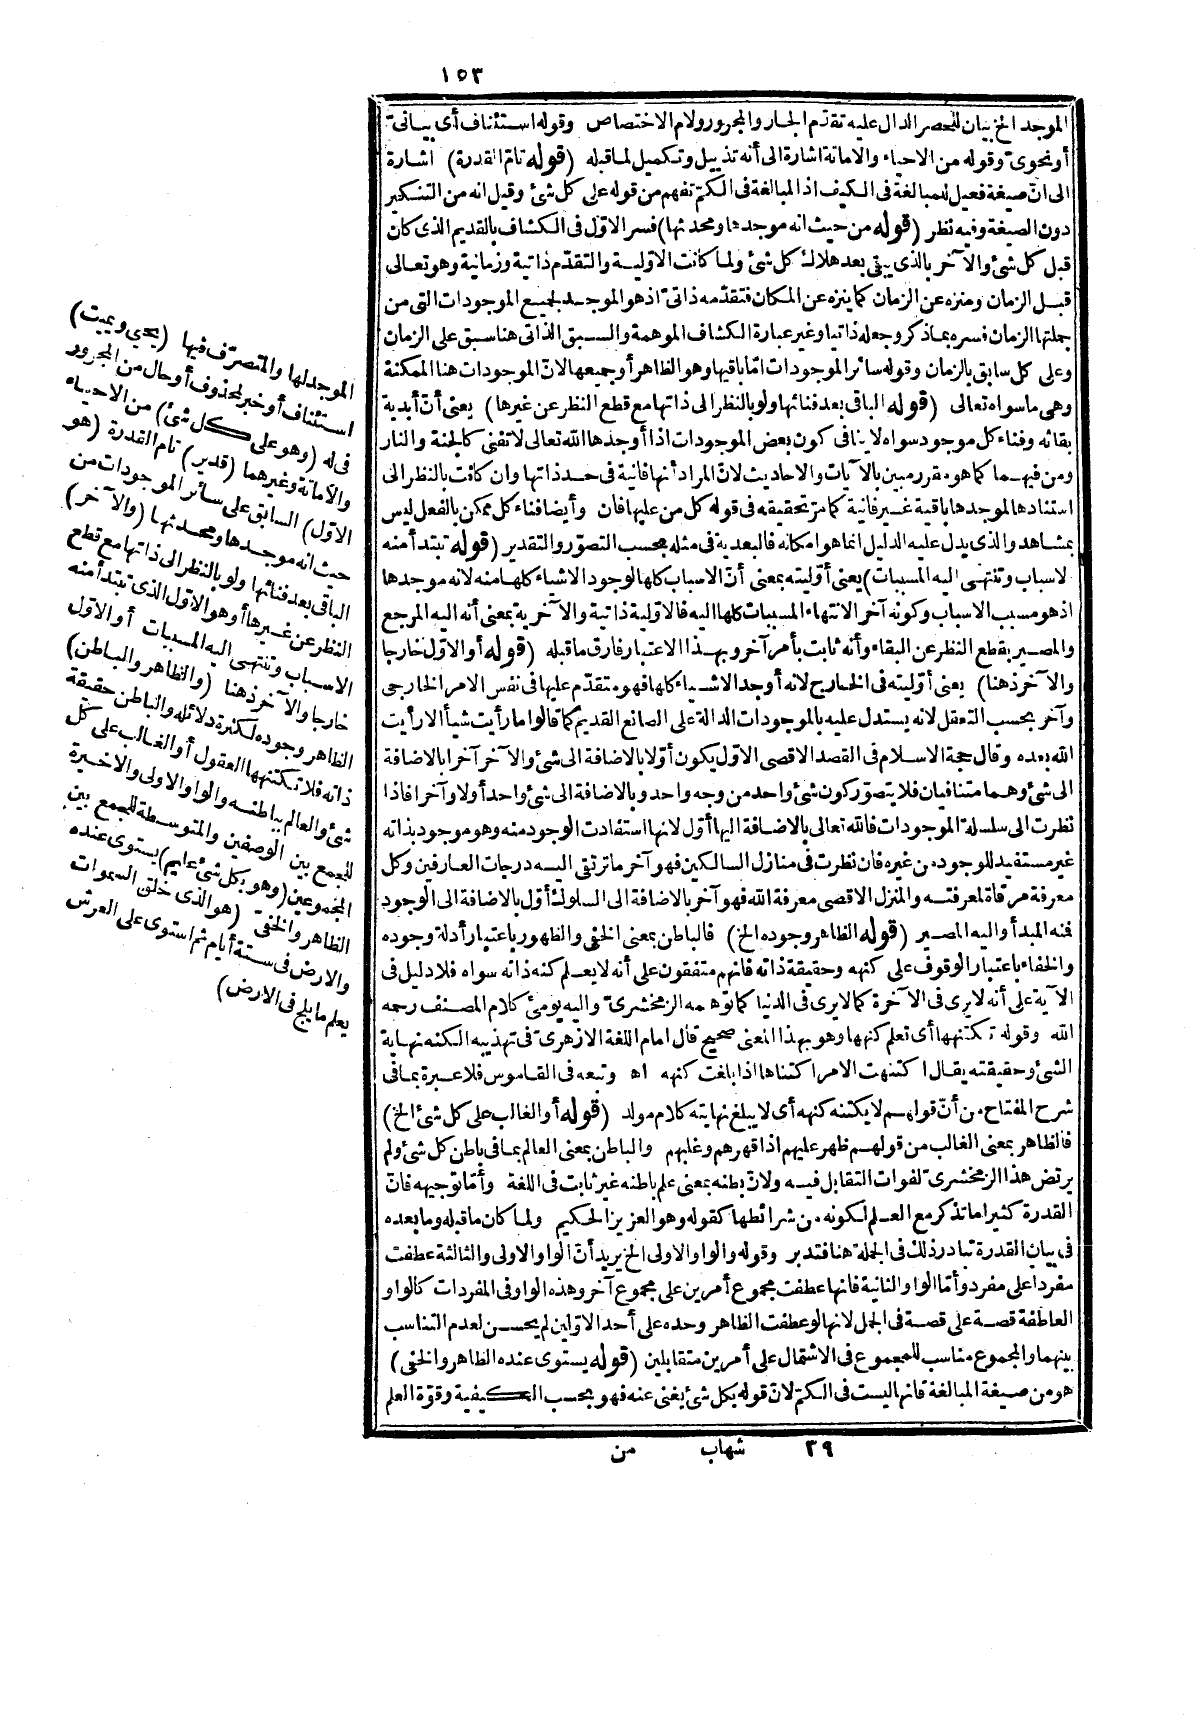 ١٥٣
الموجد الخ بيان للحصر الدال عليه تقدّم الجار والمجرور ولام الاختصاص وقوله استئناف أى بيانىّ
أونحوىّ وقوله من الاحياء والاماتة اشارة الى أنه تذييل وتكميل لماقبله (قوله تامّ القدرة) اشارة
الى انّ صيغة فعيل للمبالغة فى الكيف اذ المبالغة فى الكمّ تفهم من قوله على كل شئ وقيل انه من التنكير
دون الصيغة وفيه نظر (قوله من حيث انه موجدها ومحدثها) فسر الاوّل فى الكشاف بالقديم الذى كان
قبل كل شئ والآخر بالذى يبقى بعد هلاك كل شئ ولما كانت الاوّلية والتقدّم ذاتية وزمانية وهو تعالى
قبل الزمان ومنزه عن الزمان كما ينزه عن المكان فتقدّمه ذاتىّ اذهو الموجد لجميع الموجودات التى من
جملتها الزمان فسره بماذكر وجعله ذاتيا وغير عبارة الكشاف الموهمة والسبق الذاتى هنا سبق على الزمان
وعلى كل سابق بالزمان وقوله سائر الموجودات امّا باقيها وهو الظاهر أو جميعها لانّ الموجودات هنا الممكنة
وهى ماسواه تعالى (قوله الباقى بعد فنائها ولو بالنظر الى ذاتها مع قطع النظر عن غيرها) يعنى أنّ أبدية
بقائه وفناء كل موجود سواه لاينافى كون بعض الموجودات اذا أوجدها الله تعالى لاتفنى كالجنة والنار
ومن فيهما كما هو مقرر مبين بالآيات والاحاديث لانّ المراد أنها فانية فى حدّ ذاتها وان كانت بالنظر الى
استنادها لموجدها باقية غير فانية كما مرّ تحقيقه فى قوله كل من عليها فان وأيضا فناء كل ممكن بالفعل ليس
بمشاهد والذى يدل عليه الدليل انما هو امكانه فالبعدية فى مثله بحسب التصوّر والتقدير (قوله تبتدأ منه
لاسباب وتنتهى اليه المسببات) يعنى أوّليته بمعنى أنّ الاسباب كلها لوجود الاشياء كلها منه لانه موجدها
اذهو مسبب الاسباب وكونه آخر الانتهاء المسببات كلها اليه فالاوّلية ذاتية والآخرية بمعنى أنه اليه المرجع
والمصير بقطع النظر عن البقاء وأنه ثابت بأمر آخر وبهذا الاعتبار فارق ماقبله (قوله أو الاوّل خارجا
والآخر ذهنا) يعنى أوّليته فى الخارج لانه أوجد الاشياء كلها فهو متقدّم عليها فى نفس الامر الخارجى
وآخر بحسب التعقل لانه يستدل عليه بالموجودات الدالة على الصانع القديم كما قالوا ما رأيت شيأ الا رأيت
الله بعده وقال حجة الاسلام فى القصد الاقصى الاوّل يكون أوّلا بالاضافة الى شئ والآخر آخرا بالاضافة
الى شئ وهما متنافيان فلا يتصوّر كون شئ واحد من وجه واحد وبالاضافة الى شئ واحد أولا وآخرا فاذا
نظرت الى سلسلة الموجودات فالله تعالى بالاضافة اليها أوّل لانها استفادت الوجود منه وهو موجود بذاته
غير مستفيد للوجود من غيره فان نظرت فى منازل السالكين فهو آخر ما ترتقى اليه درجات العارفين وكل
معرفة مرقاة لمعرفته والمنزل الاقصى معرفة الله فهو آخر بالاضافة الى السلوك أول بالاضافة الى الوجود
فنه المبدأ واليه المصير (قوله الظاهر وجوده الخ) فالباطن بمعنى الخفىّ والظهور باعتبار أدلة وجوده
والخفاء باعتبار الوقوف على كنهه وحقيقة ذاته فانهم متفقون على أنه لايعلم كنه ذاته سواه فلا دليل فى
الآية على أنه لايرى فى الآخرة كما لايرى فى الدنيا كما توهمه الزمخشرىّ واليه يومئ كلام المصنف رحمه
الله وقوله تكتنهها أى تعلم كنهها وهو بهذا المعنى صحيح قال امام اللغة الازهرىّ فى تهذيبه الكنه نهاية
الشئ وحقيقته يقال اكتنهت الامر اكتناها اذا بلغت كنهه اه وتبعه فى القاموس فلا عبرة بمافى
شرح المفتاح من أنّ قولهم لايكتنه كنهه أى لا يبلغ نهايته كلام مولد (قوله أو الغالب على كل شئ الخ)
فالظاهر بمعنى الغالب من قولهم ظهر عليهم اذا قهرهم وغلبهم والباطن بمعنى العالم بمافى باطن كل شئ ولم
يرتض هذا الزمخشرىّ لفوات التقابل فيه ولانّ بطنه بمعنى علم باطنه غير ثابت فى اللغة وأمّا توجيهه فانّ
القدرة كثيرا ماتذكر مع العلم لكونه من شرائطها كقوله وهو العزيز الحكيم ولما كان ماقبله ومابعده
فى بيان القدرة تبادر ذلك فى الجملة هنا فتدبر وقوله والواو الاولى الخ يريد أنّ الواو الاولى والثالثة عطفت
مفردا على مفرد وأمّا الواو الثانية فانها عطفت مجموع أمرين على مجموع آخر وهذه الواو فى المفردات كالواو
العاطفة قصة على قصة فى الجمل لانها لو عطفت الظاهر وحده على أحد الاوّلين لم يحسن لعدم التناسب
بينهما والمجموع مناسب للمجموع فى الاشتمال على أمرين متقابلين (قوله يستوى عنده الظاهر والخفى)
هو من صيغة المبالغة فانها ليست فى الكمّ لانّ قوله بكل شئ يغنى عنه فهو بحسب الكيفية وقوّة العلم
الموجد لها والمتصرّف فيها (يحيى ويميت)
استئناف أو خبر لمحذوف أو حال من المجرور
فى له (وهو على كل شئ) من الاحياء
والاماتة وغيرهما (قدير) تام القدرة (هو
الاوّل) السابق على سائر الموجودات من
حيث انه موجدها ومحدثها (والآخر)
الباقى بعد فنائها ولو بالنظر الى ذاتها مع قطع
النظر عن غيرها أو هو الاوّل الذى تبتدأ منه
الاسباب وتنتهى اليه المسببات أو الاوّل
خارجا والآخر ذهنا (والظاهر والباطن)
الظاهر وجوده لكثرة دلائله والباطن حقيقة
ذاته فلا تكتنهها العقول أو الغالب على كل
شئ والعالم بباطنه والواو الاولى والاخيرة
للجمع بين الوصفين والمتوسطة للجمع بين
المجموعين (وهو بكل شئ عليم) يستوى عنده
الظاهر والخفىّ (هو الذى خلق السموات
والارض فى ستة أيام ثم استوى على العرش
يعلم ما يلج فى الارض)
٣٩ شهاب من